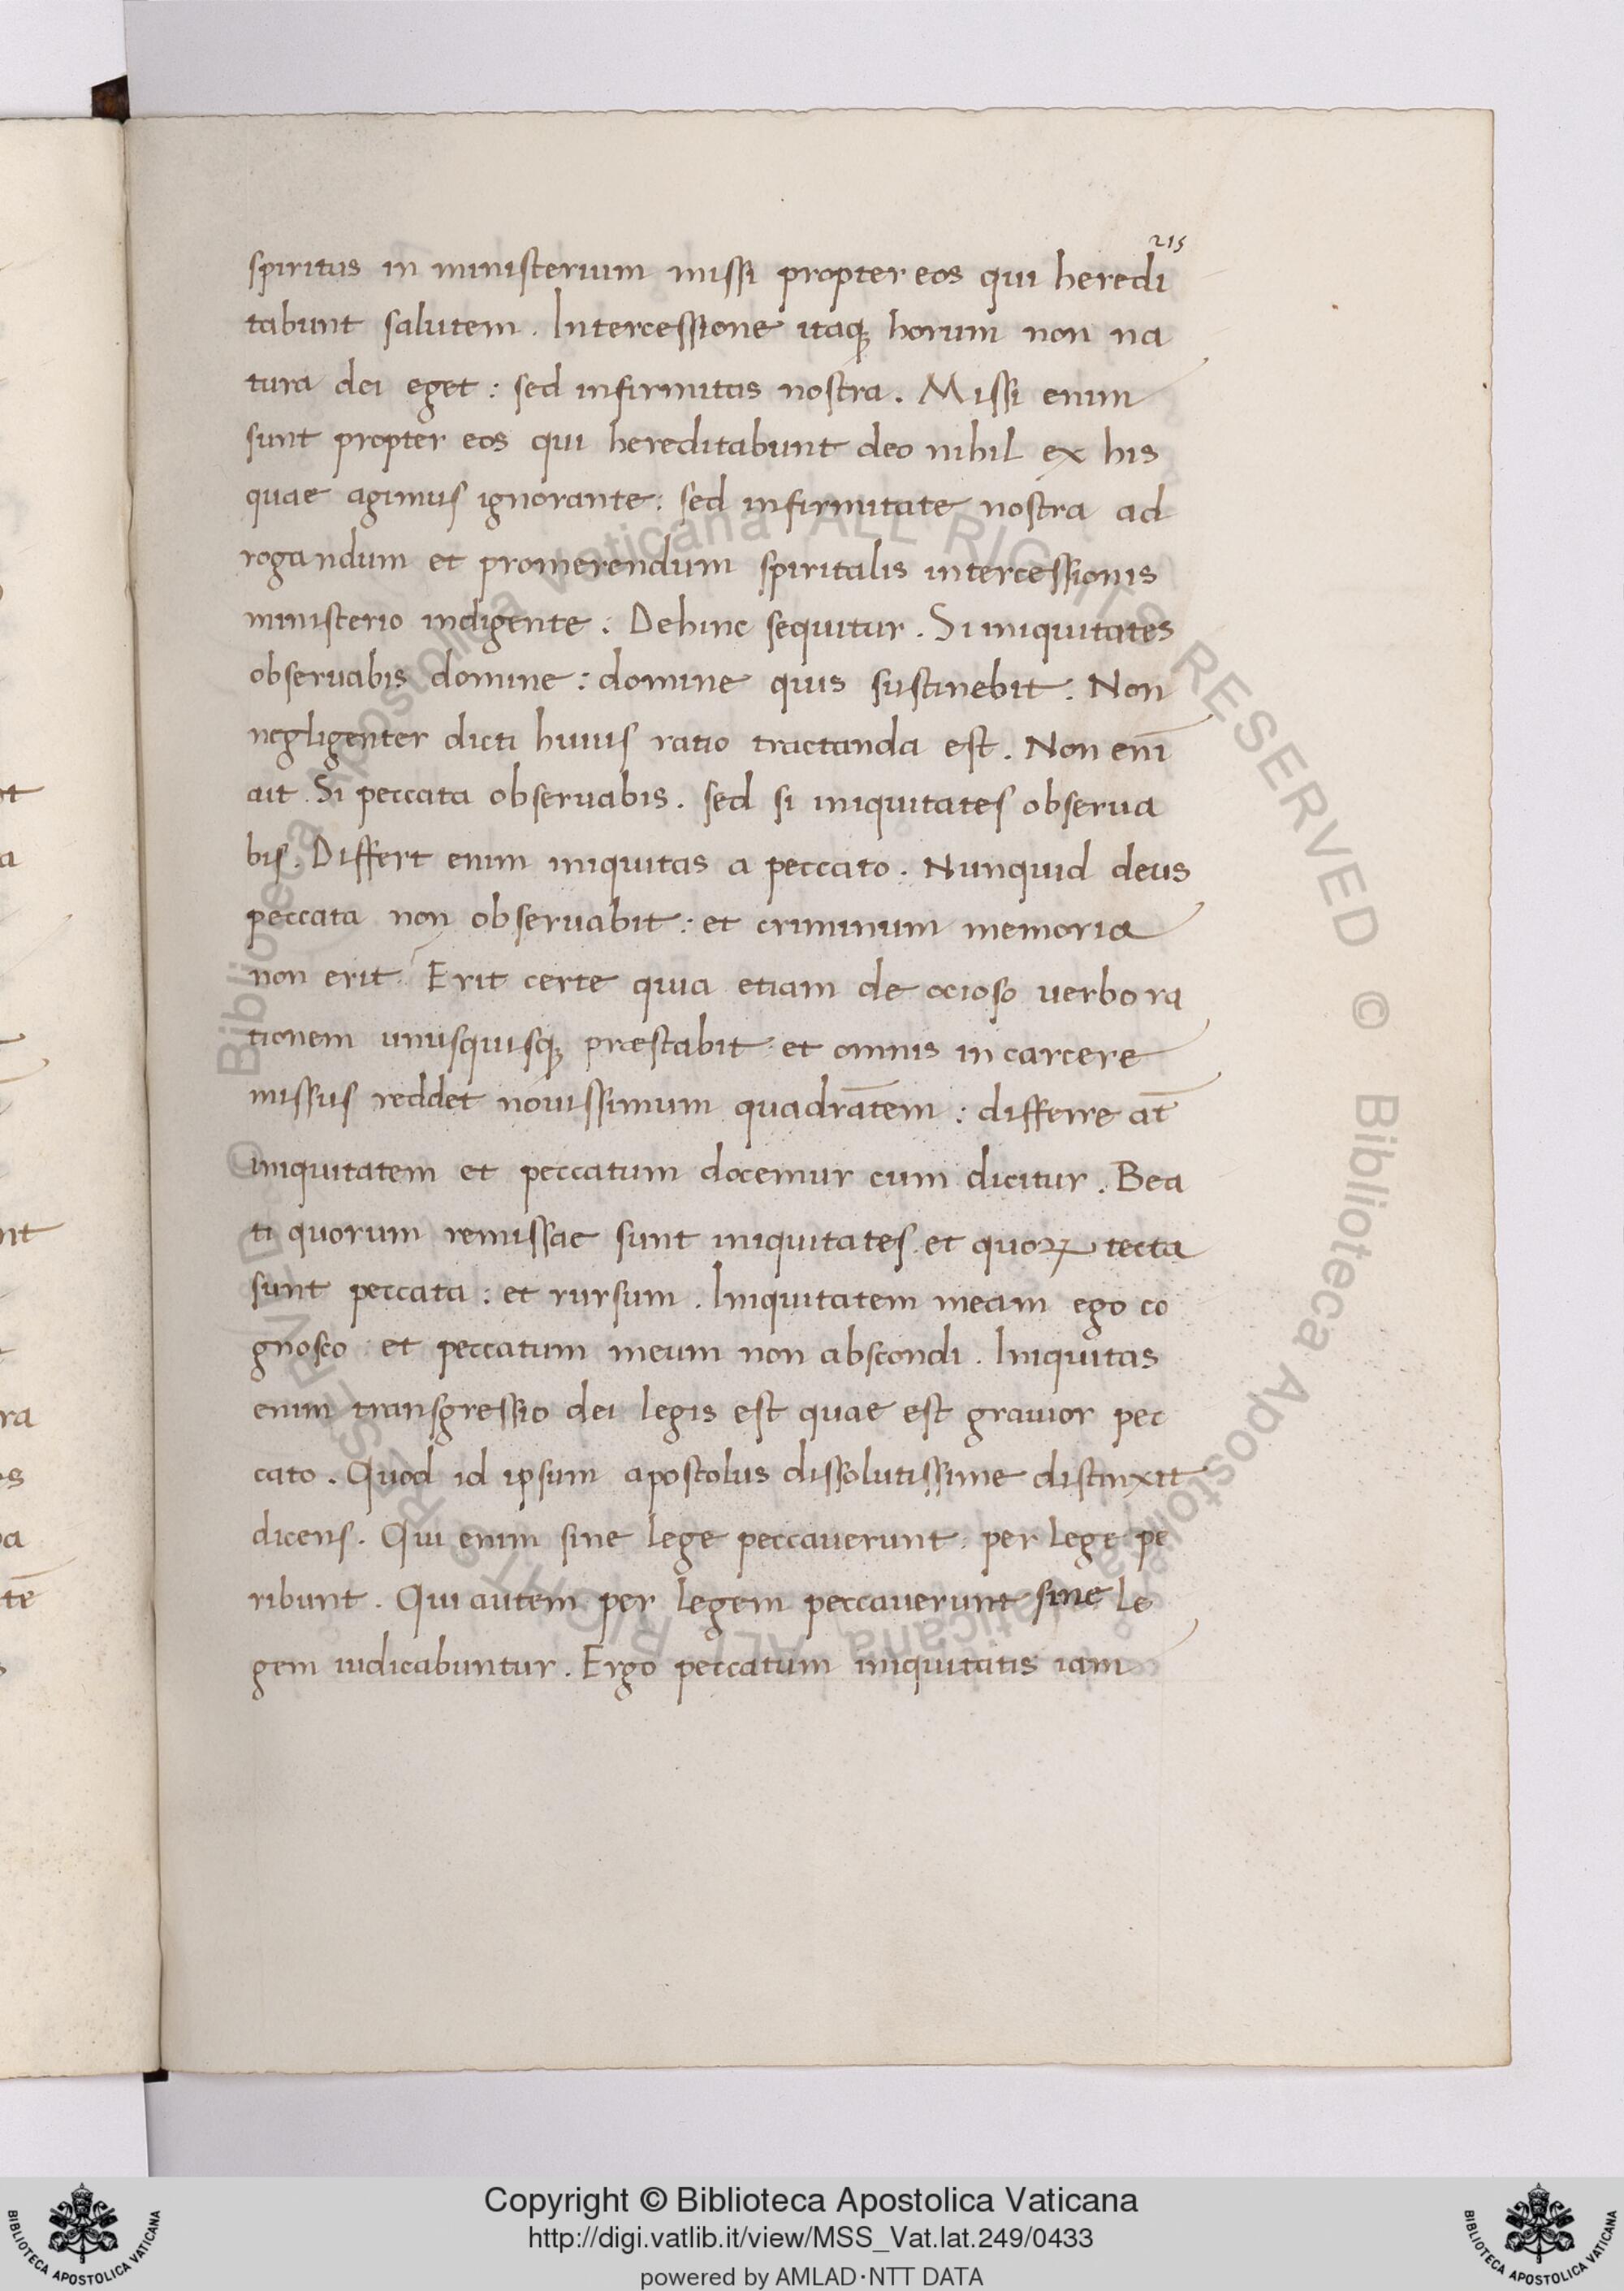 215
spiritus in ministerium missi propter eos qui heredi
tabunt salutem. Intercessione itaq; horum non na
tura dei eget: sed infirmitas nostra. Missi enim
sunt propter eos qui hereditabunt deo nihil ex his
quae agimus ignorante: sed infirmitate nostra ad
rogandum et promerendum spiritalis intercessionis
ministerio indigente. Dehinc sequitur. Si iniquitates
observabis domine: domine quis sustinebit. Non
negligenter dicti huius ratio tractanda est. Non enī
ait. Si peccata observabis. sed si iniquitates observa
bis. Differt enim iniquitas a peccato. Nunquid deus
peccata non observabit: et criminum memoria
non erit. Erit certe quia etiam de ocioso verbo ra
tionem unusquisq; præstabit: et omnis in carcere
missus reddet novissimum quadrātem: differre āt
iniquitatem et peccatum docemur cum dicitur. Bea
ti quorum remissae sunt iniquitates et quoꝝ tecta
sunt peccata: et rursum. Iniquitatem meam ego co
gnosco: et peccatum meum non abscondi. Iniquitas
enim transgressio dei legis est quae est gravior pec
cato. Quod id ipsum apostolus dissolutissime distinxit
dicens. Qui enim sine lege peccaverunt: per lege pe
ribunt. Qui autem per legem peccaverunt sine le
gem iudicabuntur. Ergo peccatum iniquitatis iam
© Biblioteca Apostolica Vaticana ALL RIGHTS RESERVED © Biblioteca Apostolica Vaticana ALL RIGHTS RESERVED
Copyright © Biblioteca Apostolica Vaticana
http://digi.vatlib.it/view/MSS_Vat.lat.249/0433
powered by AMLAD·NTT DATA
BIBLIOTECA APOSTOLICA VATICANA
BIBLIOTECA APOSTOLICA VATICANA